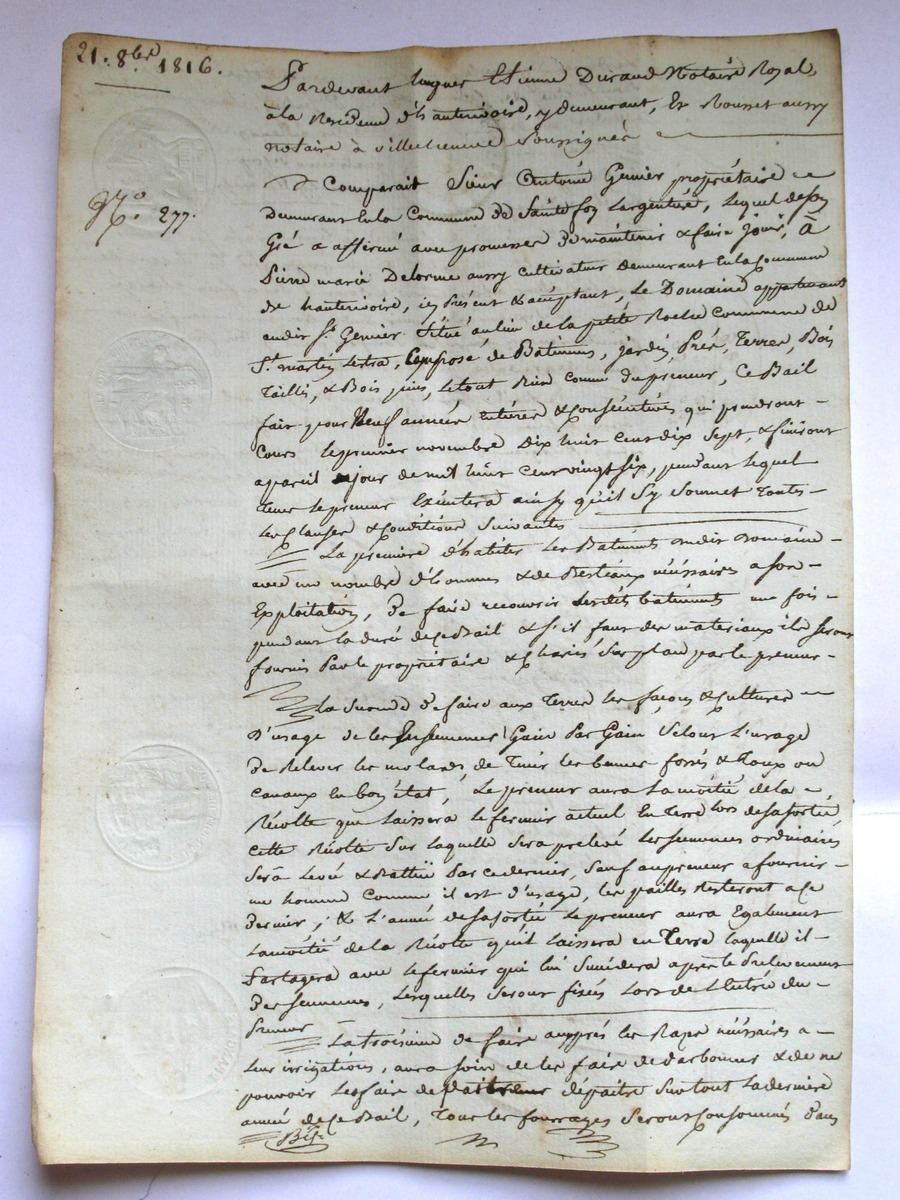 21. 8bre 1816.
Pardevant hugues Etienne Durand Notaire Royal,
à la Residence d'hauterivoire, y demeurant, Et Rousset aussy
notaire à Villechenneve Soussignés
N.° 277.
Comparait Sieur Antoine Grenier propriétaire
demeurant En la Commune de Sainte foy Largentiere, Lequel de son
Gré a affermé avec promesses de maintenir & faire Jouir, à
Pierre marie Delorme aussy cultivateur demeurant En la Commune
de hauterivoire, icy Présent & acceptant, Le Domaine appartenant
audit Sr. Grenier Situé au lieu de la petite Roche Commune de
St. martin Lestra, Composé de Batiments, Jardin, Prés, Terres, Bois
Taillis, & Bois pins, Le tout Bien connu du preneur, Ce Bail
fait pour Neuf années Entières & Consécutives qui prendront
Cours le premier novembre Dix huit cent dix Sept, & finiront
a pareil jour de mil huit cent vingt six, pendant lequel
tems le preneur Exécutera ainsy qu'il S'y Soumet Toutes
Les Clauses & Conditions Suivantes
La premiere d'habiter les Batiments dudit Domaine
avec un nombre d'hommes & de Bestiaux nécéssaires a son
Exploitation, De faire recouvrir Lesdits batiments une fois
pendant la durée de Ce Bail & S'il faut des materiaux ils Seront
fournis Par le propriétaire & Chariés Sur place par le preneur
La Seconde De faire aux Terres les façons & Cultures
D'usage de les Ensemencer Gain Par Gain Selon L'usage
De Relever les molards de Tenir les bennes fossés &
canaux En bon état, Le preneur aura La moitié de la
Récolte que Laissera le fermier actuel En Terre lors de sa Sortie
Cette Récolte Sur laquelle Sera prélevé Les Semences ordinaires
Sera Levée & Battue Par ce dernier, Sauf au preneur a fournir
un homme Comme il est d'usage, les pailles Resteront a Ce
dernier, & L'année de sa Sortie Le preneur aura Egalement
La moitié de la Récolte qu'il Laissera en Terre laquelle il
Partagera avec le fermier qui lui Succédera après le Prelevement
Des Semences, Lesquelles Seront fixées Lors de L'Entrée du
Preneur
La troisieme de faire auxprés les Rases nécéssaires a
Leur irrigations, aura Soin de les faire & de ne
pouvoir Les faire dépaitre Surtout La derniere
année de Ce Bail, Tous les fourrages Seront Consommés Dans